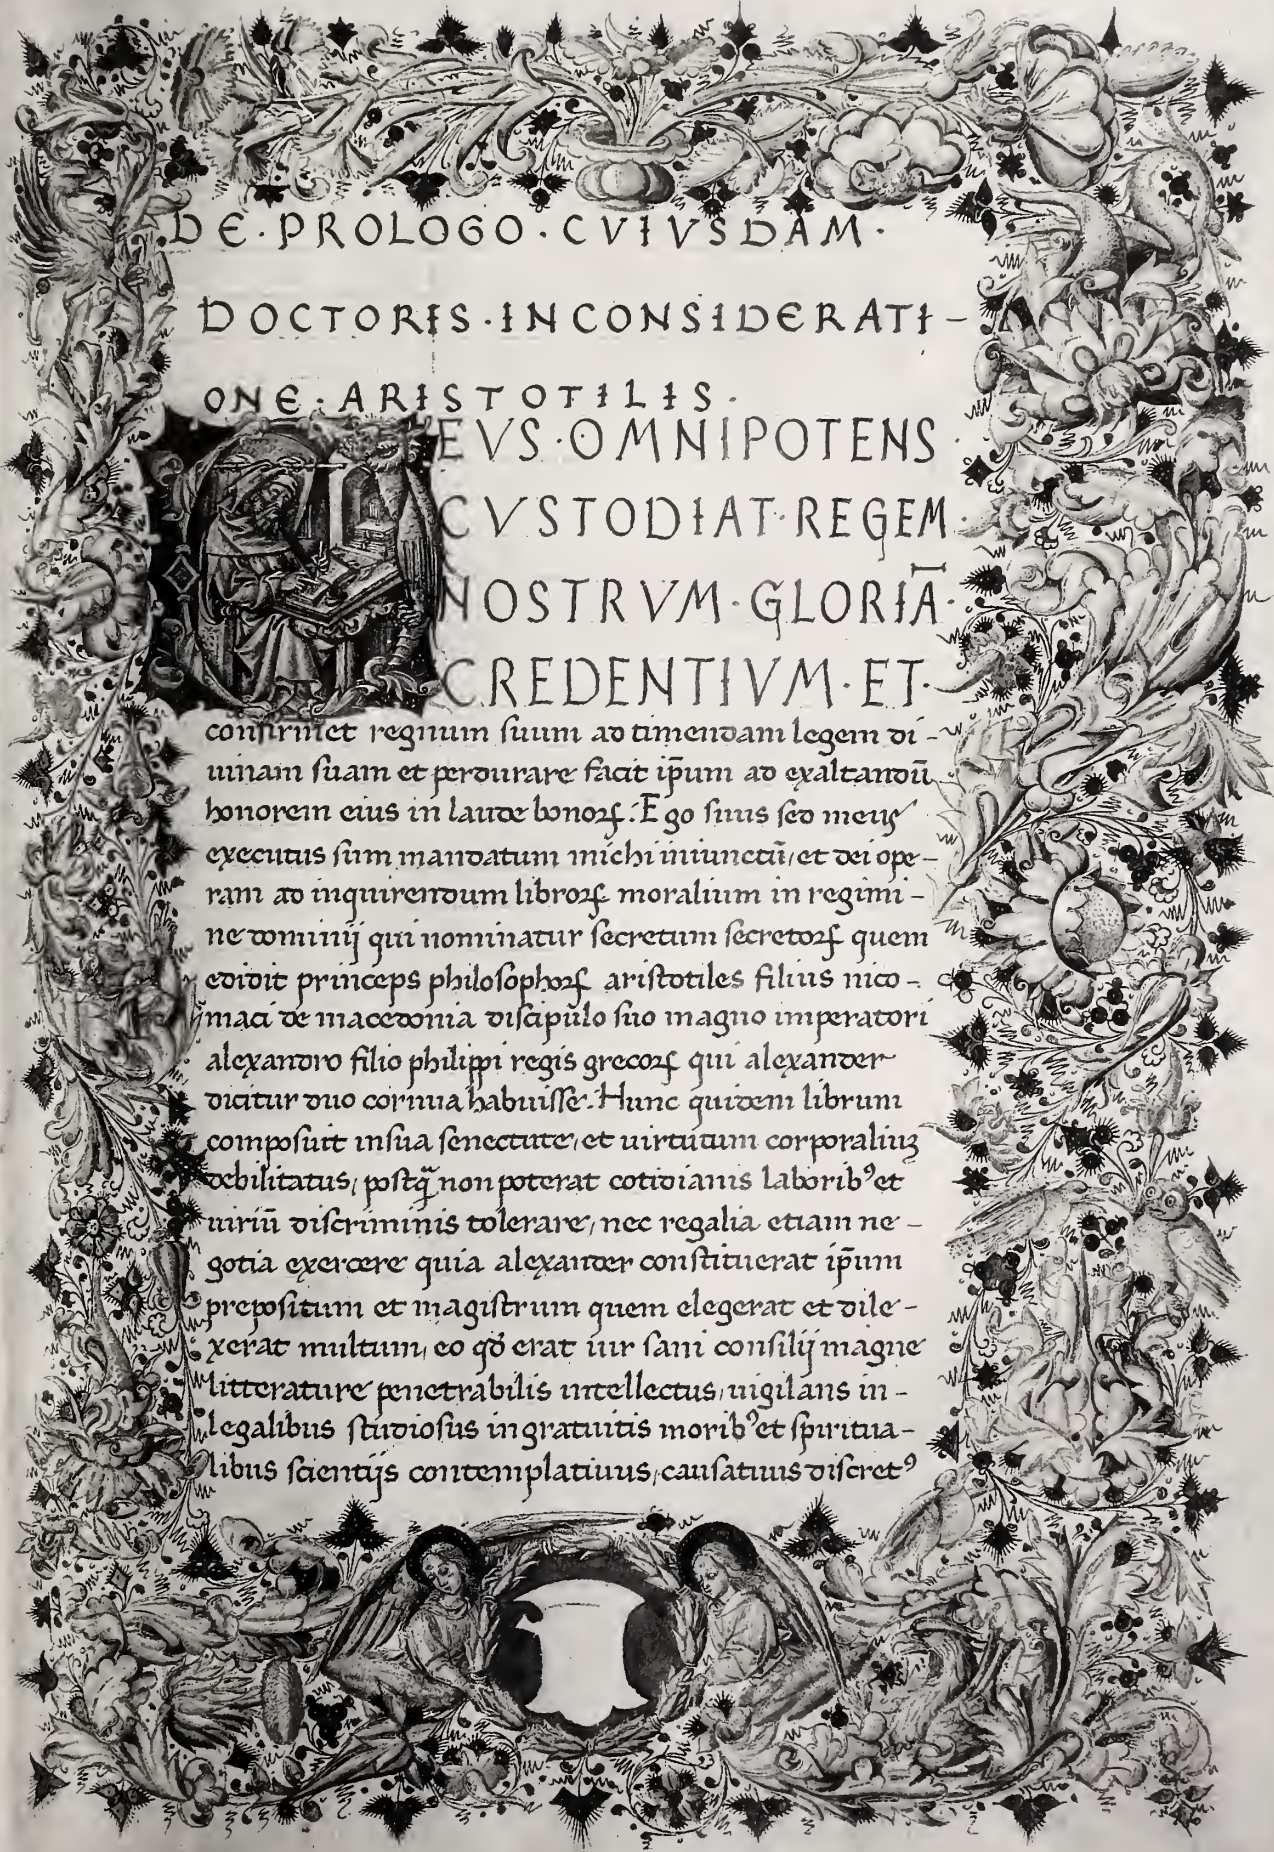 DE · PROLOGO · CVIVSDAM ·
DOCTORIS · INCONSIDERATI -
ONE · ARISTOTILIS ·
DEVS · OMNIPOTENS ·
CVSTODIAT · REGEM ·
NOSTRVM · GLORIĀ ·
CREDENTIVM · ET ·
confirmet regnum suum ad timendam legem di -
uinam suam et perdurare facit ip̄um ad exaltandū
honorem eius in laude bonoꝝ. Ego siuis sed meus
executus sum mandatum michi iniunctū, et dei ope -
ram ad inquirendum libroꝝ moralium in regimi -
ne dominij qui nominatur secretum secretoꝝ quem
edidit princeps philosophoꝝ aristotiles filius nico -
maci de macedonia discipulo suo magno imperatori
alexandro filio philippi regis grecoꝝ qui alexander
dicitur duo cornua habuisse. Hunc quidem librum
composuit insua senectute, et uirtutum corporaliuꝫ
debilitatus, postq̄ non poterat cotidianis laboribꝰ et
uiriū discriminis tolerare, nec regalia etiam ne -
gotia exercere quia alexander constituerat ip̄um
prepositum et magistrum quem elegerat et dile -
xerat multum, eo qđ erat uir sani consilij magne
litterature penetrabilis intellectus, uigilans in -
legalibus studiosus in gratuitis moribꝰ et spiritua -
libus scientijs contemplatiuus, causatiuus discretꝰ